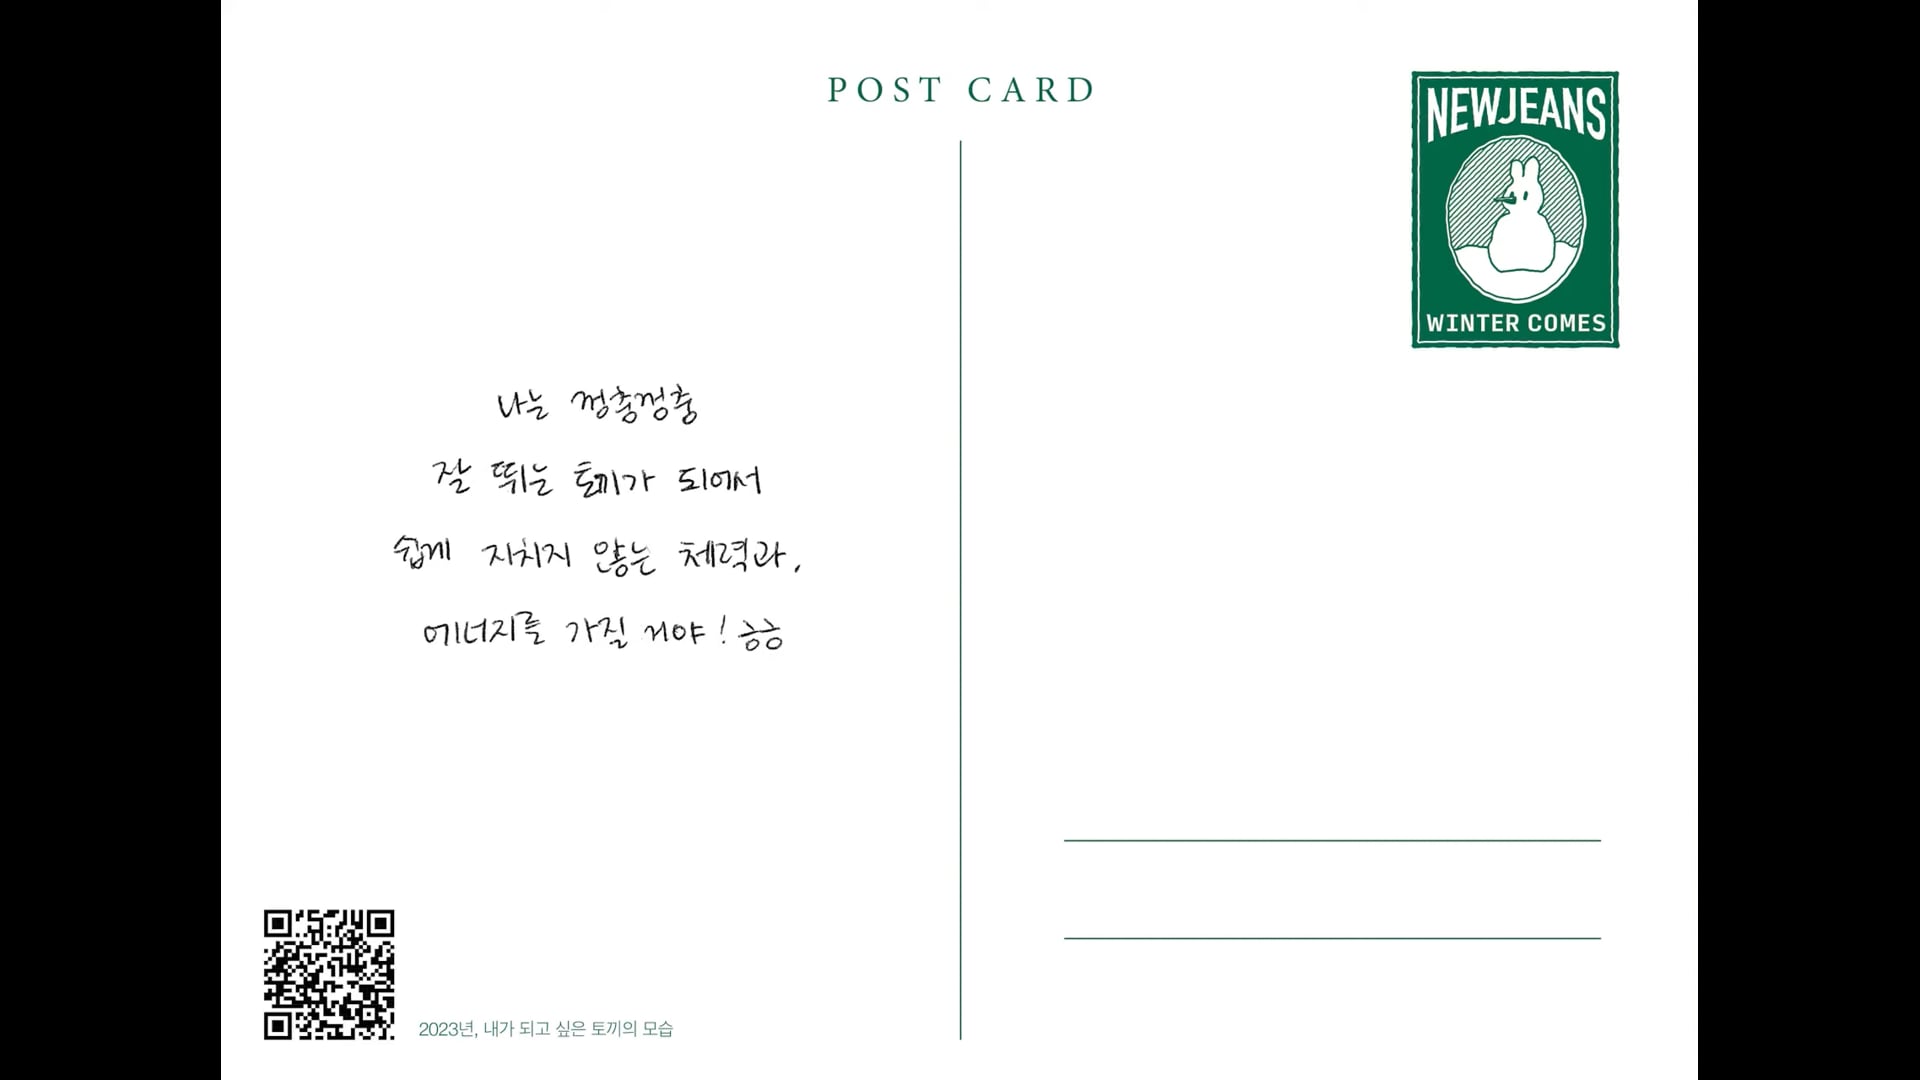 POST CARD
NEWJEANS
WINTER COMES
나는 껑충껑충
잘 뛰는 토끼가 되어서
쉽게 지치지 않는 체력과,
에너지를 가질 거야! 흐흐
2023년, 내가 되고 싶은 토끼의 모습